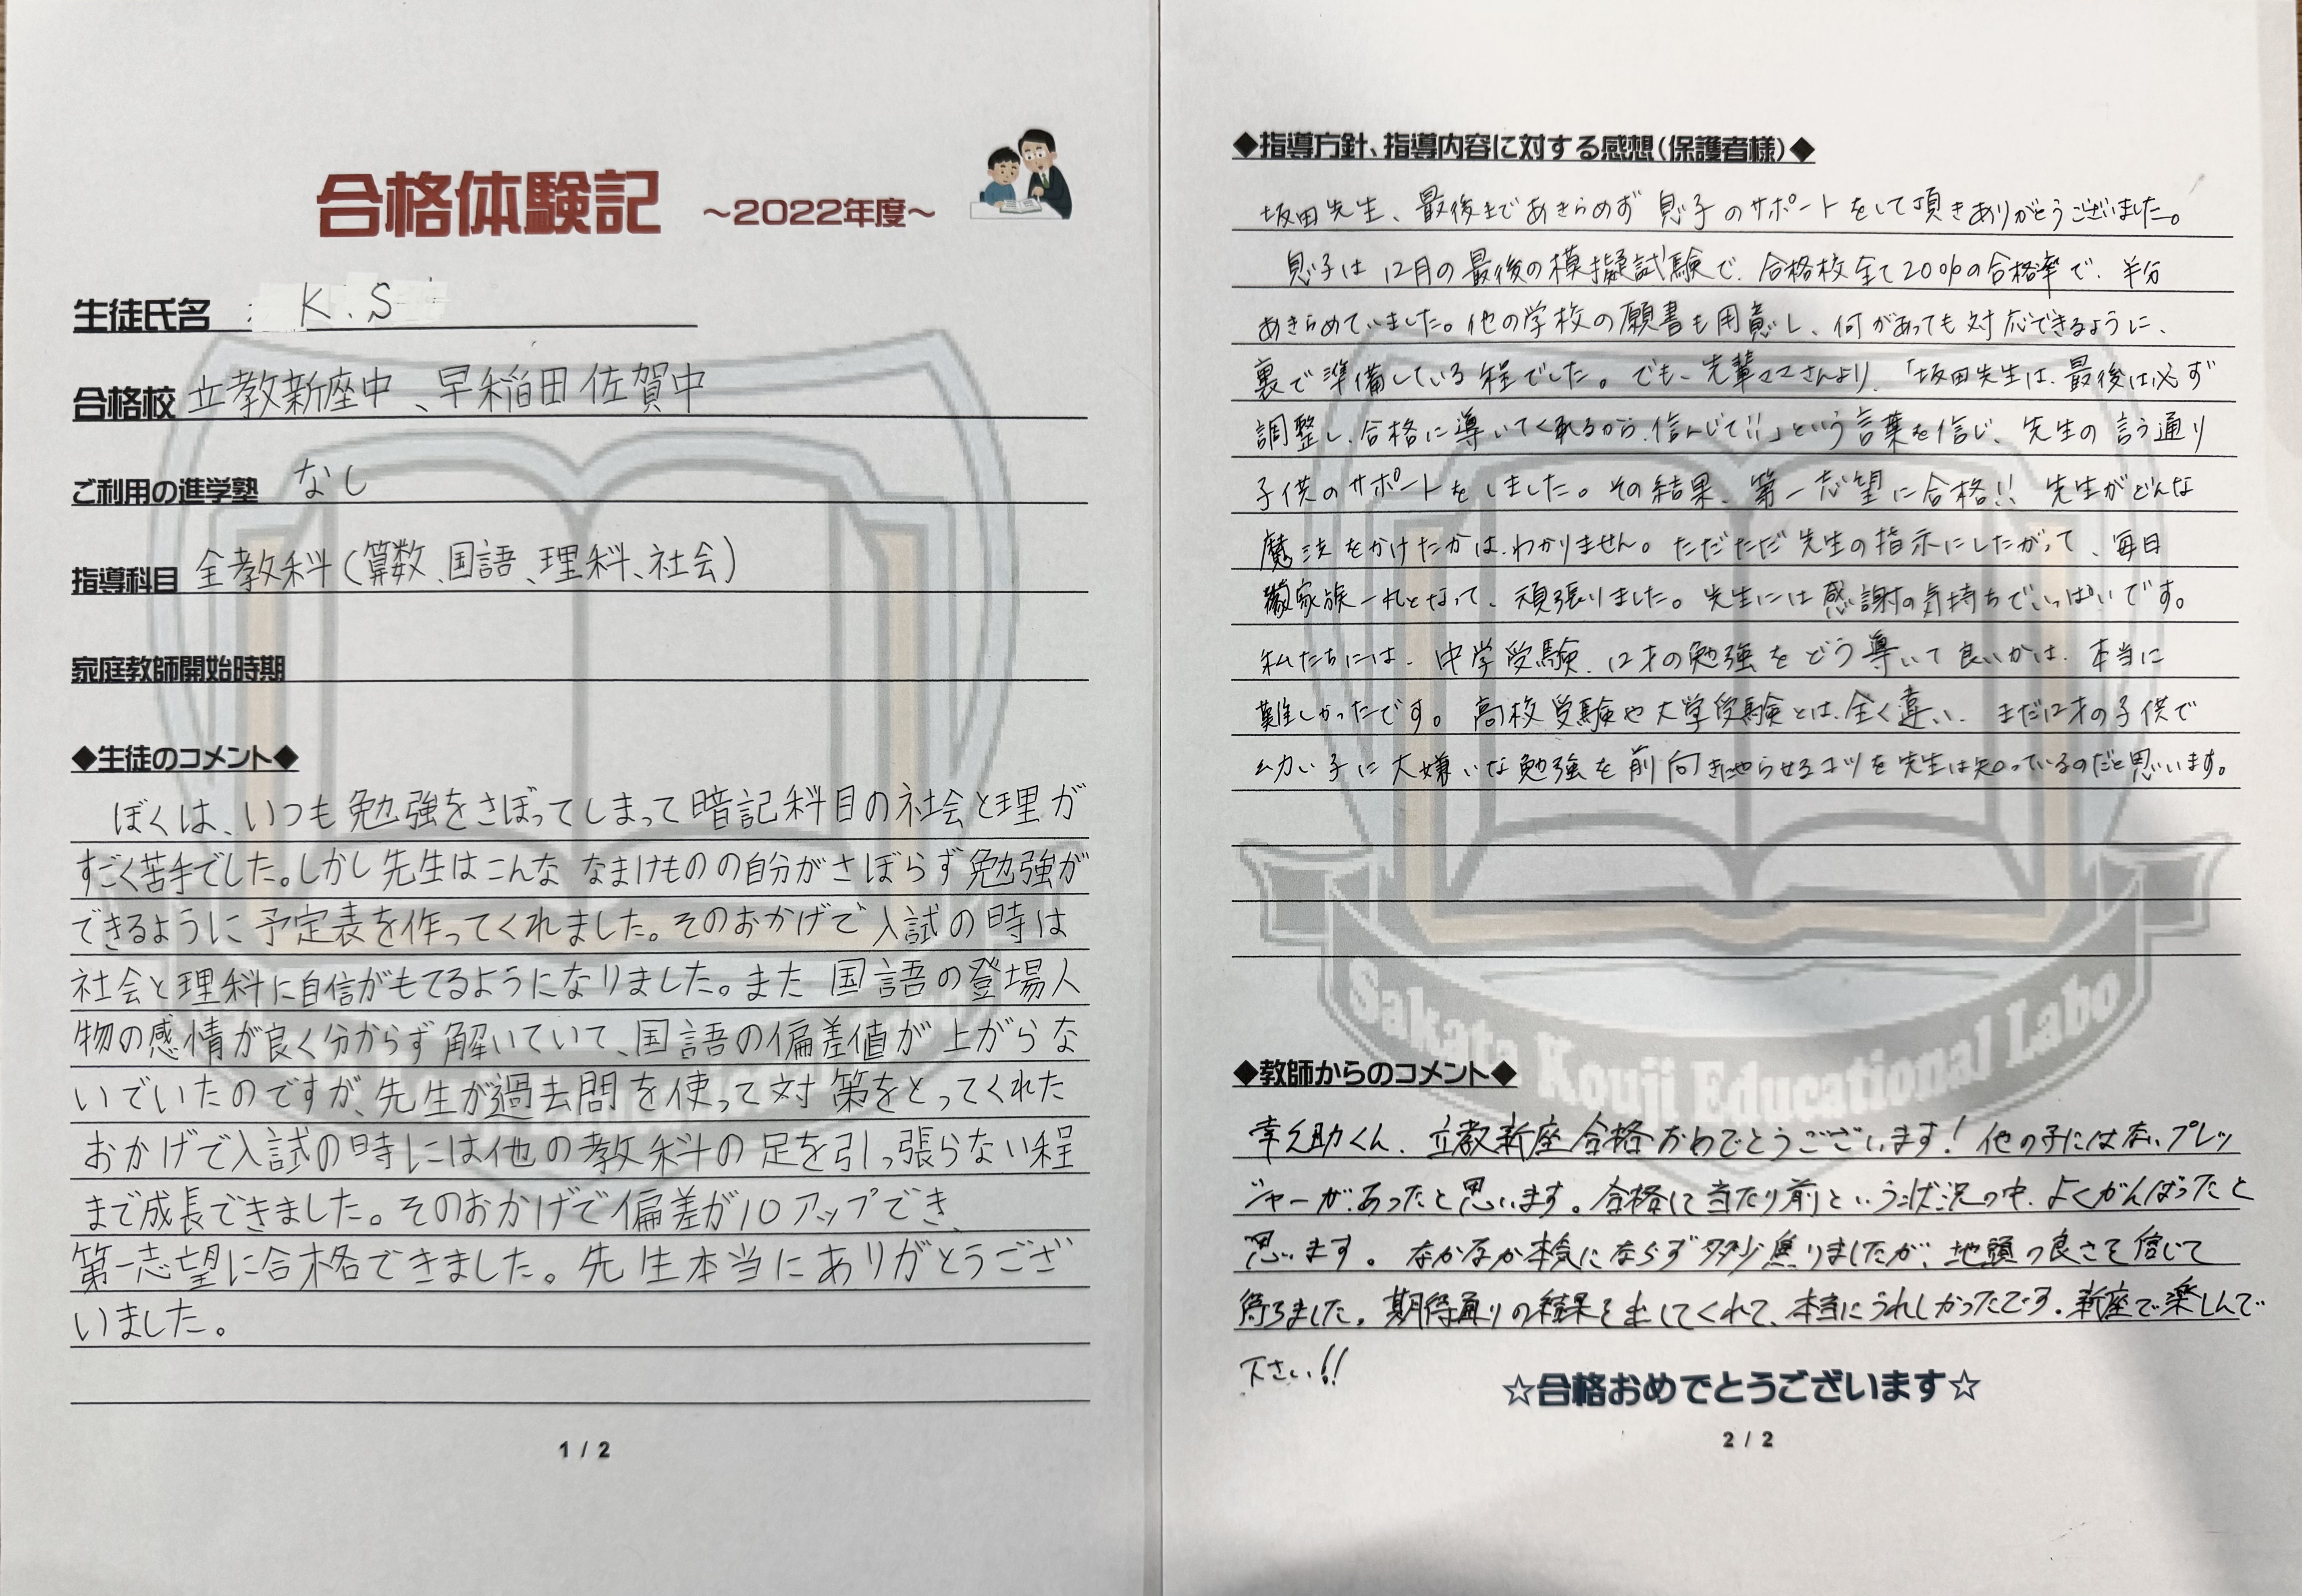 合格体験記 ～2022年度～
生徒氏名 : K.S
合格校 立教新座中、早稲田佐賀中
ご利用の進学塾 なし
指導科目 全教科(算数、国語、理科、社会)
家庭教師開始時期
◆生徒のコメント◆
ぼくは、いつも勉強をさぼってしまって暗記科目の社会と理が
すごく苦手でした。しかし先生はこんな なまけものの自分がさぼらず勉強が
できるように予定表を作ってくれました。そのおかげで入試の時は
社会と理科に自信がもてるようになりました。また 国語の登場人
物の感情が良く分からず解いていて、国語の偏差値が上がらな
いでいたのですが、先生が過去問を使って対策をとってくれた
おかげで入試の時には他の教科の足を引っ張らない程
まで成長できました。そのおかげで偏差が10アップでき、
第一志望に合格できました。先生本当にありがとうござ
いました。
1 / 2
◆指導方針、指導内容に対する感想(保護者様)◆
坂田先生、最後まであきらめず息子のサポートをして頂きありがとうございました。
息子は12月の最後の模擬試験で、合格校全て20%の合格率で、半分
あきらめていました。他の学校の願書も用意し、何があっても対応できるように、
裏で準備している程でした。でも、先輩ママさんより、「坂田先生は、最後は必ず
調整し、合格に導いてくれるから、信んじて!!」という言葉を信じ、先生の言う通り
子供のサポートをしました。その結果、第一志望に合格!! 先生がどんな
魔法をかけたかは、わかりません。ただただ先生の指示にしたがって、毎日
家族一丸となって、頑張りました。先生には感謝の気持ちでいっぱいです。
私たちには、中学受験、12才の勉強をどう導いて良いかは、本当に
難しかったです。高校受験や大学受験とは、全く違い、まだ12才の子供で
幼い子に大嫌いな勉強を前向きにやらせるコツを先生は知っているのだと思います。
Sakata Kouji Educational Labo
◆教師からのコメント◆
幸之助くん、立教新座合格おめでとうございます! 他の子には無いプレッ
シャーがあったと思います。合格して当たり前という状況の中、よくがんばったと
思います。なかなか本気にならず多少焦りましたが、地頭の良さを信じて
待ちました。期待通りの結果を出してくれて、本当にうれしかったです。新座で楽しんで
下さい!!
☆合格おめでとうございます☆
2 / 2